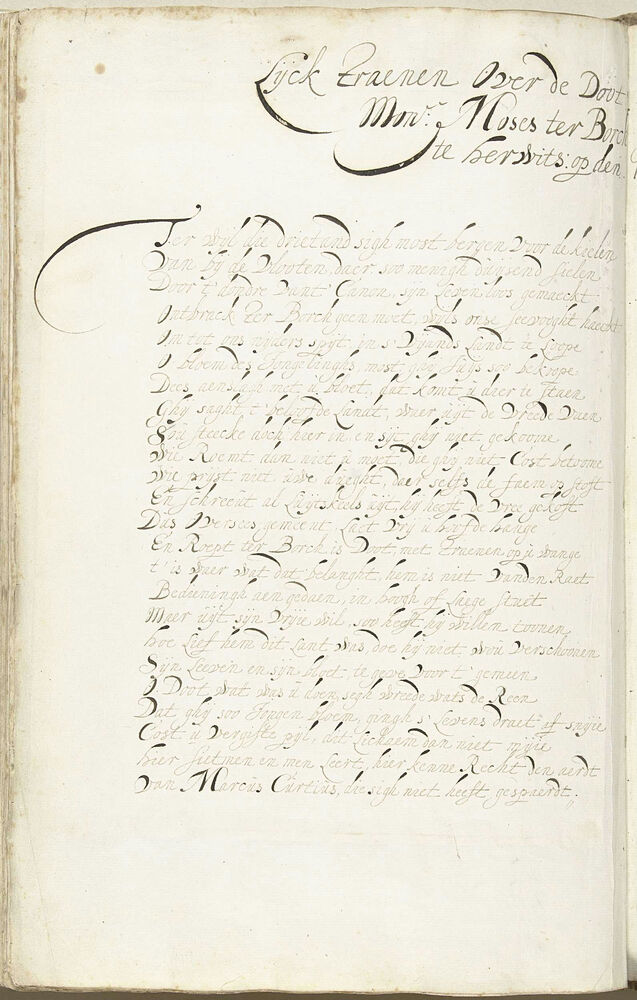 Lyck Traenen Over de Doot
Monr. Moses ter Borch
te herwits: op den
Ter wijl den drietand sigh most bergen Voor de kielen
Van by de Vlooten, daer soo menigh duijsend sielen
Door t' dondre vant Canon, sijn Levenloos gemaeckt
Ontbrack Ter Borch geen moet, wijls onse seevooght haeckt
Om tot ons nijders spyt, in s' Vijands Landt te Loope
O bloem des Jongelinghs most ghy
Dees aenslagh met u bloet, dat komt u dier te staen
Ghy saght t' beloofde Landt, waer uyt de Vreede Vaen
Sou steecke noch hier in, en syt ghy niet gekoome
Wie Roemt dan niet u moet, die ghy niet Cost betoome
Wie pryst niet uwe deught, daer selfs de faem op stoft
En schreeut al Luytskeels uyt, hy heeft de Vree gekoft
Dus Oversees gemeent, Laet Vry u hoofde hange
En Roept ter Borch is Doot, met traenen op u wange
t' is waer wat dat belanght, hem is niet Vanden Raet
Bedieningh aen gedaen, in hoogh of Laege staet
Maer uyt syn Vrye wil, soo heeft hy willen toonen
hoe Lief hem dit Lant was, doe hy niet wou Verschoonen
Syn Leeven en syn bloet, te geve Voor t' gemeen
O Doot wat was u doen, segh wreede wats de Reen
Dat ghy soo Jongen bloem, gingh s' Levens draet af snyie
Cost u Vergifte pyl, dit Lichaem dan niet myie
hier sietmen en men Leert, hier kenne Recht den aerdt
van Marcus Curtius, die sigh niet heeft gespaerdt.